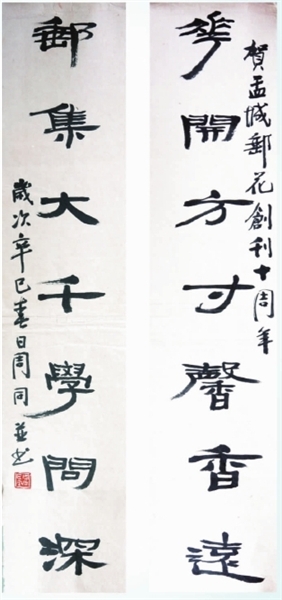 賀孟城郵花創刊十周年
花開方寸馨香遠
郵集大千學問深
歲次辛巳春日周同並书